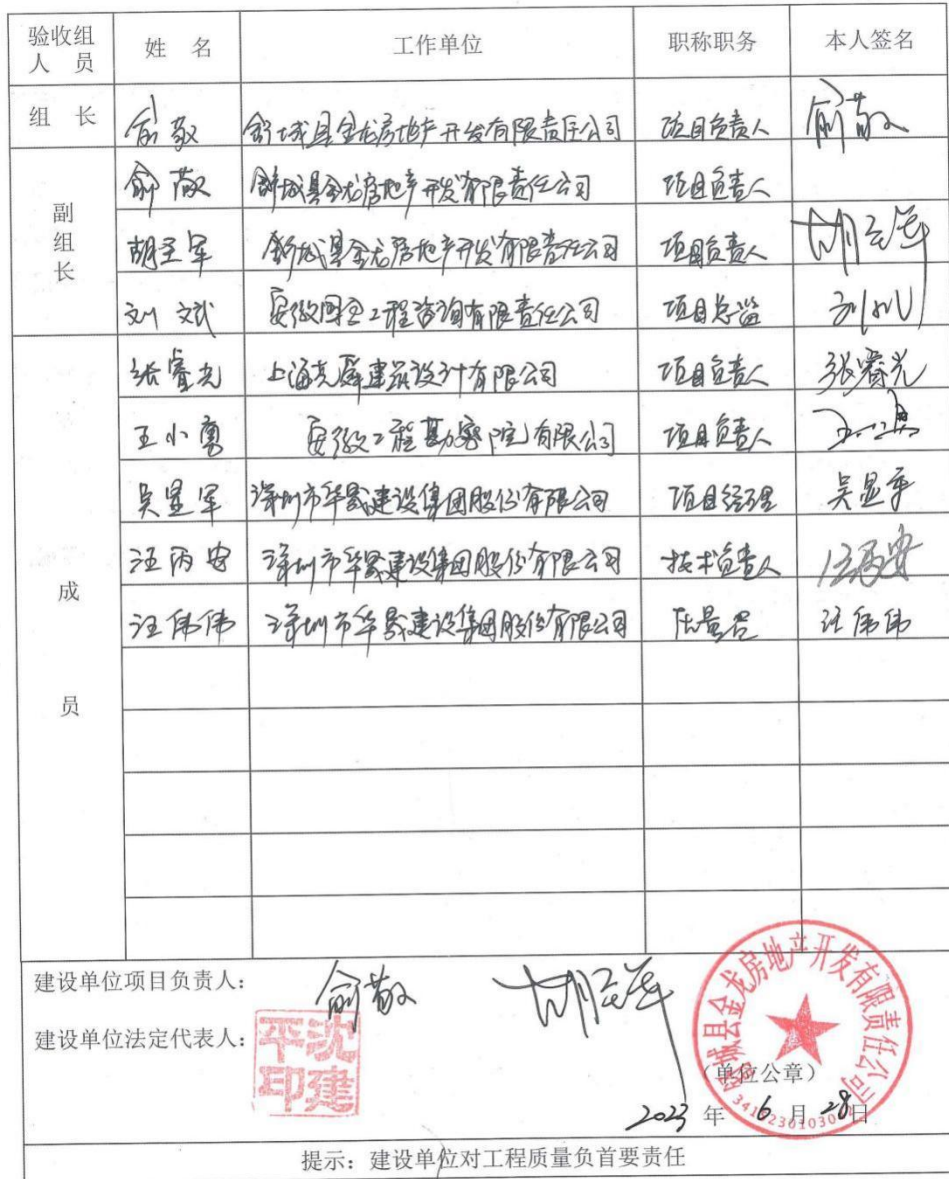 验收组人 员 姓 名 工作单位 职称职务 本人签名
组 长 俞敬 舒城县金龙房地产开发有限责任公司 项目负责人 俞敬
副组长
俞敬 舒城县金龙房地产开发有限责任公司 项目负责人
胡圣军 舒城县金龙房地产开发有限责任公司 项目负责人
刘文武 安徽国圣工程咨询有限责任公司 项目总监
成员
张睿尧 上海尧舜建筑设计有限公司 项目负责人
王小勇 安徽工程勘察院有限公司 项目负责人 王小勇
吴显军 深圳市华晟建设集团股份有限公司 项目经理
汪丙安 深圳市华晟建设集团股份有限公司 技术负责人 汪丙安
汪伟伟 深圳市华晟建设集团股份有限公司 质量员 汪伟伟
建设单位项目负责人: 俞敬
建设单位法定代表人: 沈建平印
舒城县金龙房地产开发有限责任公司
(单位公章)
2023 年 6 月 28日
提示: 建设单位对工程质量负首要责任